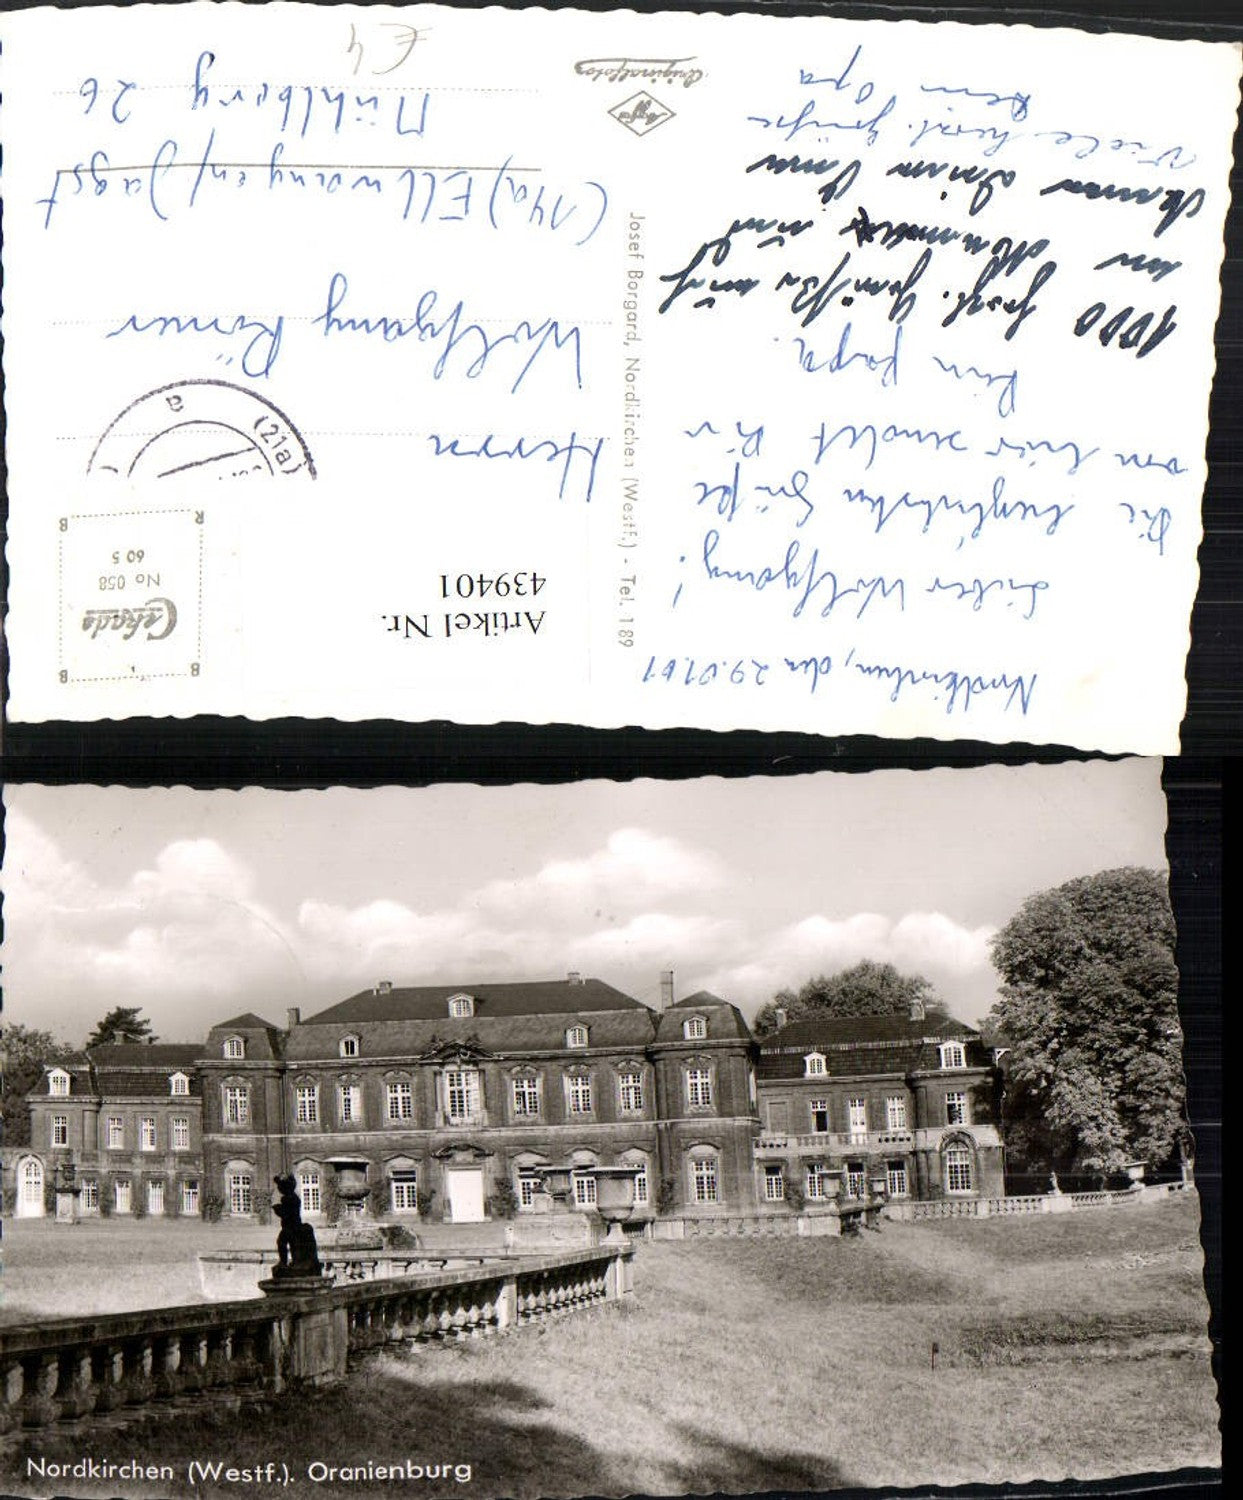 Nordkirchen, den 29.01.61
Lieber Wolfgang!
Die herzlichsten Grüße
von hier sendet Dir
Dein Papa.
1000 herzl. Grüße auch
an Mamma und
Deine Oma
Viele herzl. Grüße
Dein Opa
Agfa
Originalfoto
Josef Borgard, Nordkirchen (Westf.) - Tel. 189
B B
Cekade
No 058
60 5
B R
Artikel Nr.
439401
(21a)
a
Herrn
Wolfgang Römer
(14a) Ellwangen/Jagst
Mühlberg 26
€ 4
Nordkirchen (Westf.). Oranienburg